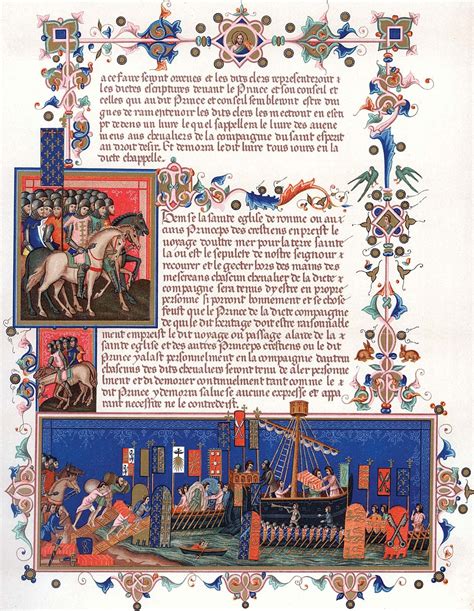 a ce faire seront ordenes et les dits clers representeront
les dictes escriptures devant le Prince et son conseil et
celles qui au dit Prince et conseil sembleront estre dig
nes de ramentenoir les dits clers les mectront en escr
pt dedens un livre le quel sappellera le livre des avene
mens aus chevaliers de la compaignie du saint esperit
au droit desir. Et demorra le dit livre tous jours en la
dicte chappelle.
Item se la sainte eglise de romme ou au
cuns Princeps des crestiens enpreist le
voyage doultre mer pour la terre sainte
la ou est le sepulcre de notre seignour
recouvrer et le gecter hors des mains des
mescreans chascun chevalier de la dicte
compaignie sera tenus dy estre en propre
personne si porront bonnement et se chose
feust que le Prince de la dicte compaignie
de qui le dit heritage doit estre raisonnable
ment empreist le dit voyage ou passage alaide de la
sainte eglise et des autres Princeps crestiens ou le dit
Prince y alast personnelment en la compaignie dautrui
chascuns des dits chevaliers seront tenu de aler personne
lment et di demorer continuelment tant comme le
dit Prince y demorra salve se aucune expresse et appa
rant necessite ne le contredeist.